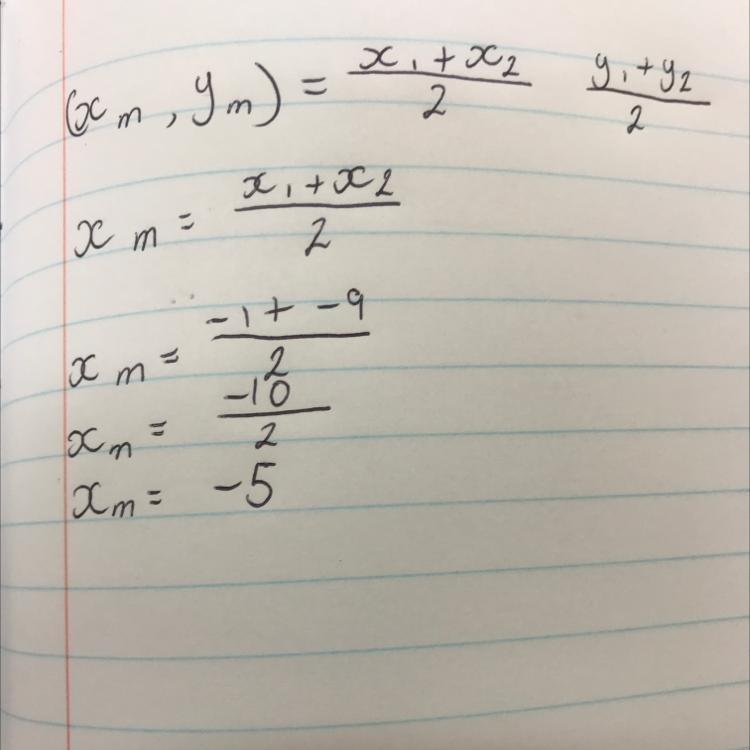 (x_m, y_m) = \frac{x_1 + x_2}{2} \quad \frac{y_1 + y_2}{2}
x_m = \frac{x_1 + x_2}{2}
x_m = \frac{-1 + -9}{2}
x_m = \frac{-10}{2}
x_m = -5